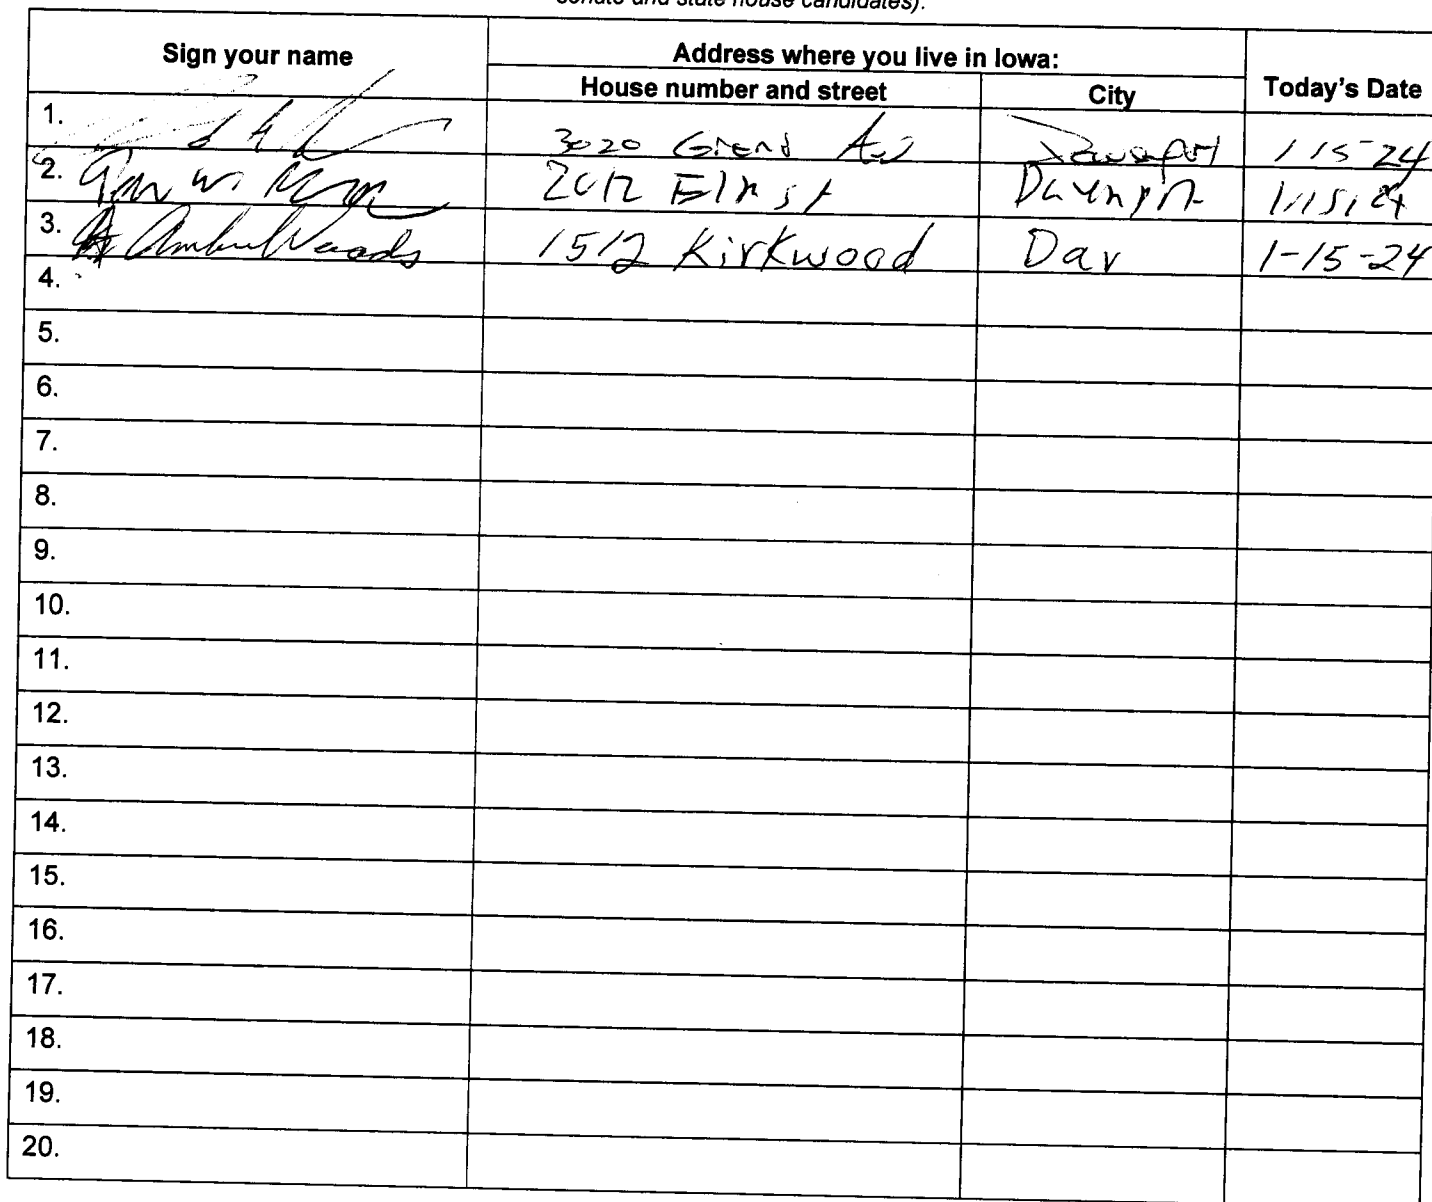 senate and state house candidates).
Sign your name
Address where you live in Iowa:
House number and street
City
Today's Date
1. 3020 Grand Av Davenport 1-15-24
2. 2012 Elm St 1/15/24
3. Amber Woods 1512 Kirkwood Dav 1-15-24
4.
5.
6.
7.
8.
9.
10.
11.
12.
13.
14.
15.
16.
17.
18.
19.
20.